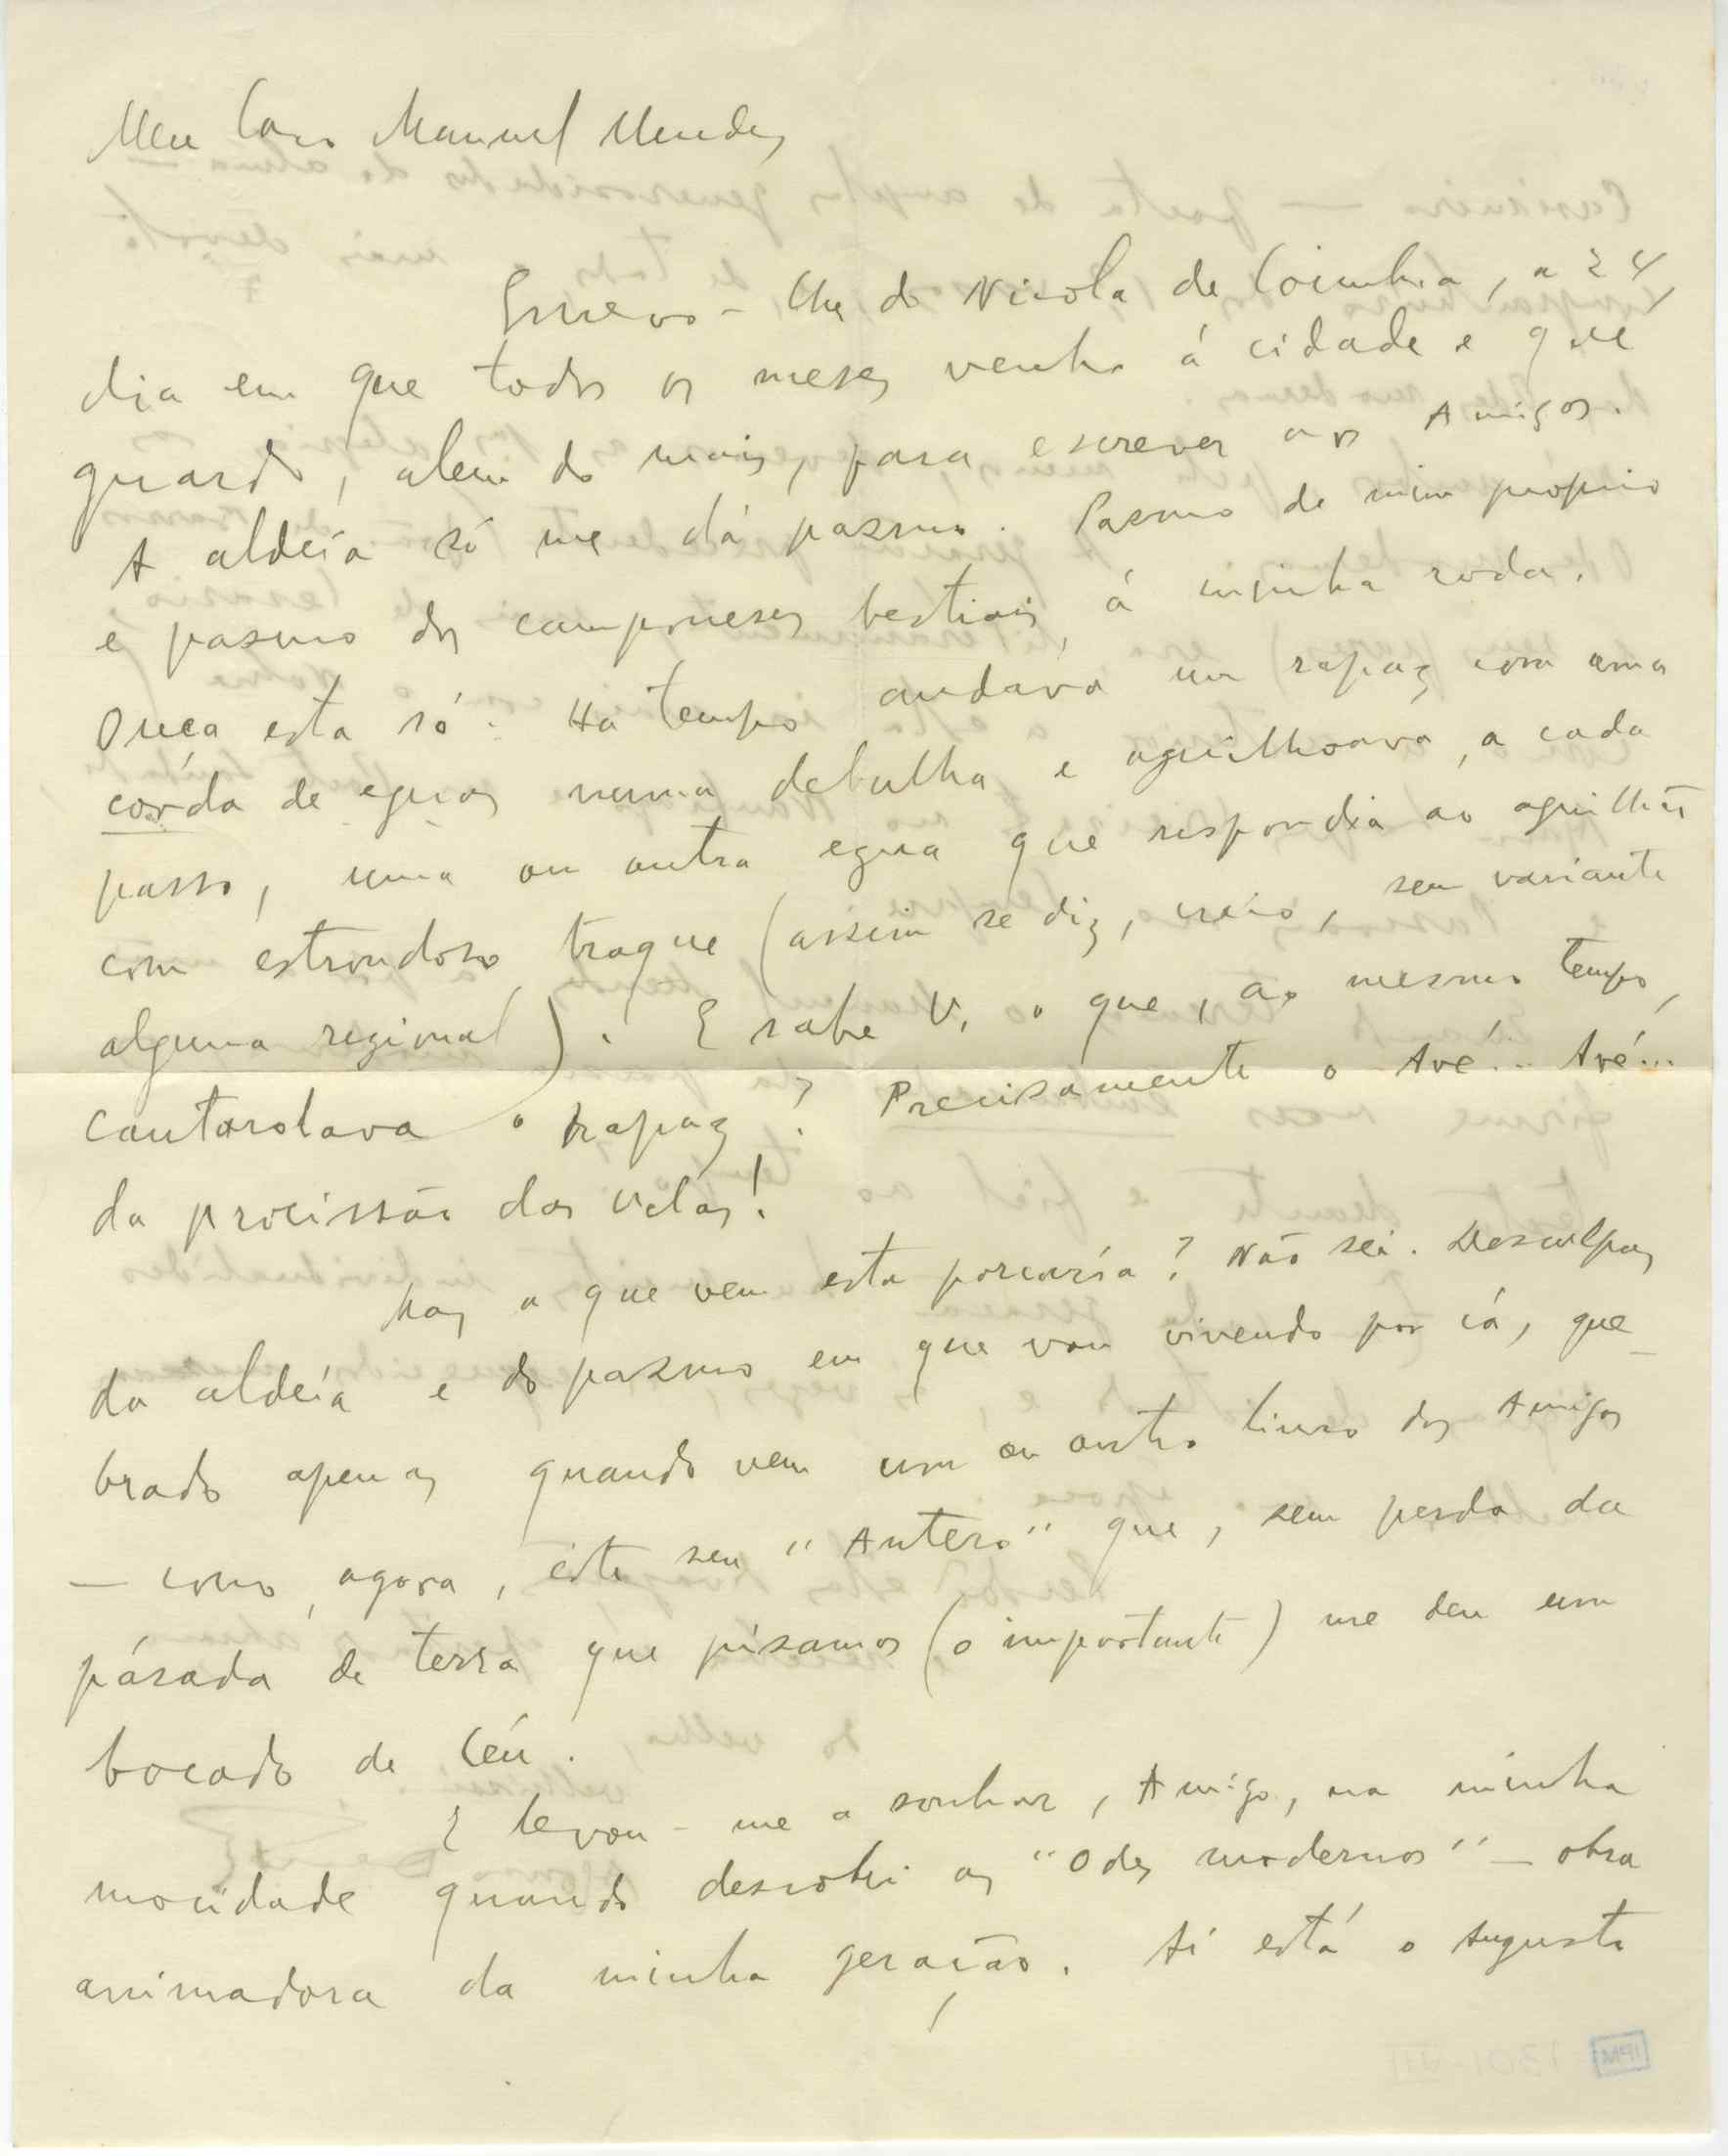 Meu Caro Manuel Mendes
Escrevo-lhe do Nicola de Coimbra, a 24,
dia em que todos os meses venho á cidade e que
guardo, alem do mais, para escrever aos Amigos.
A aldeia só me dá pasmo. Pasmo de mim proprio
e pasmo dos camponeses bestiais, á minha roda.
Ouça esta só: Ha tempo andava um rapaz com uma
córda de eguas numa debulha e aguilhoava, a cada
passo, uma ou outra egua que respondia ao aguilhão
com estrondoso traque (assim se diz, creio, sem variante
alguma regional). E sabe V. o que, ao mesmo tempo,
cantarolava o rapaz? Precisamente o Avé... Avé...
da procissão das velas!
Mas a que vem esta porcaria? Não sei. Desculpas
da aldeia e do pasmo em que vou vivendo por cá, que-
brado apenas quando vem um ou outro livro dos Amigos
— como, agora, êste seu "Antero" que, sem perda da
párada de terra que pisamos (o importante) me deu um
bocado de Céu.
E levou-me a sonhar, Amigo, na minha
mocidade quando descobri as "Odes modernas" — obra
animadora da minha geração. Aí está o Augusto